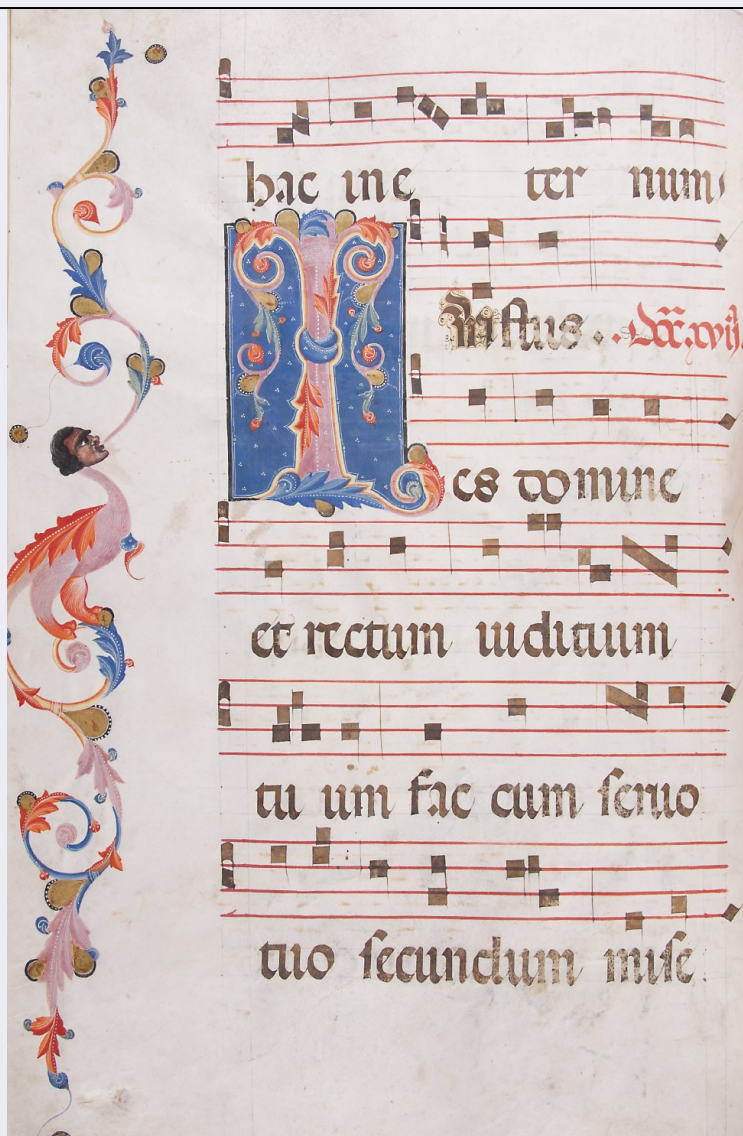 hac in e ter num
IUſtus . .xvij.
es domine
et rectum iudicium
tu um fac cum ſeruo
tuo ſecundum miſe